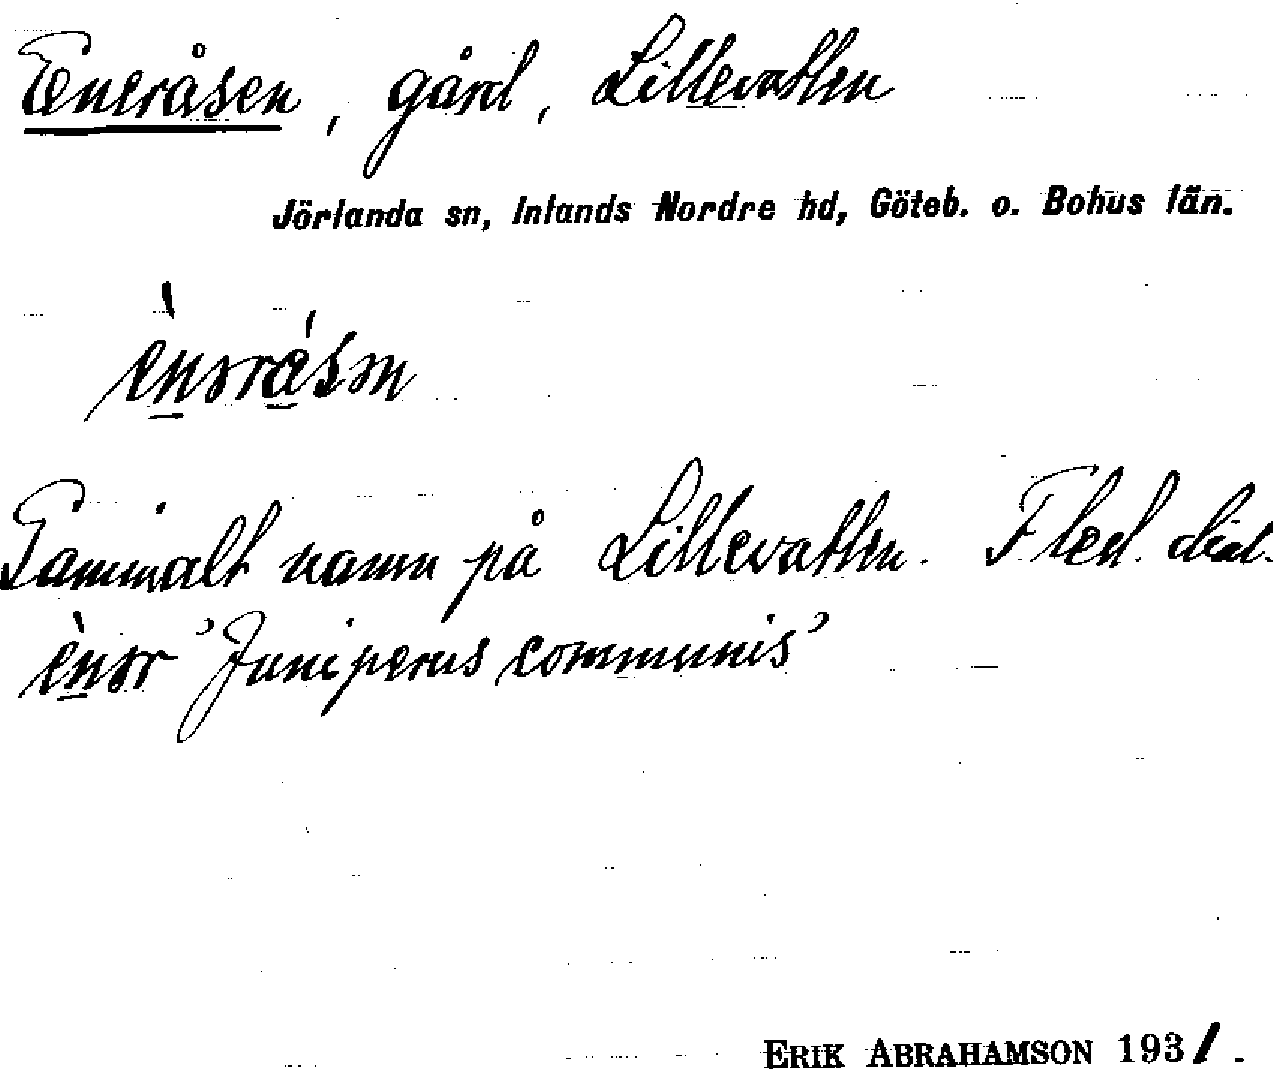 Eneråsen, gård, Lillevatten
Jörlanda sn, Inlands Nordre hd, Göteb. o. Bohus län.
Gammalt namn på Lillevatten. F led. dial.
'Juniperus communis'
ERIK ABRAHAMSON 1931.